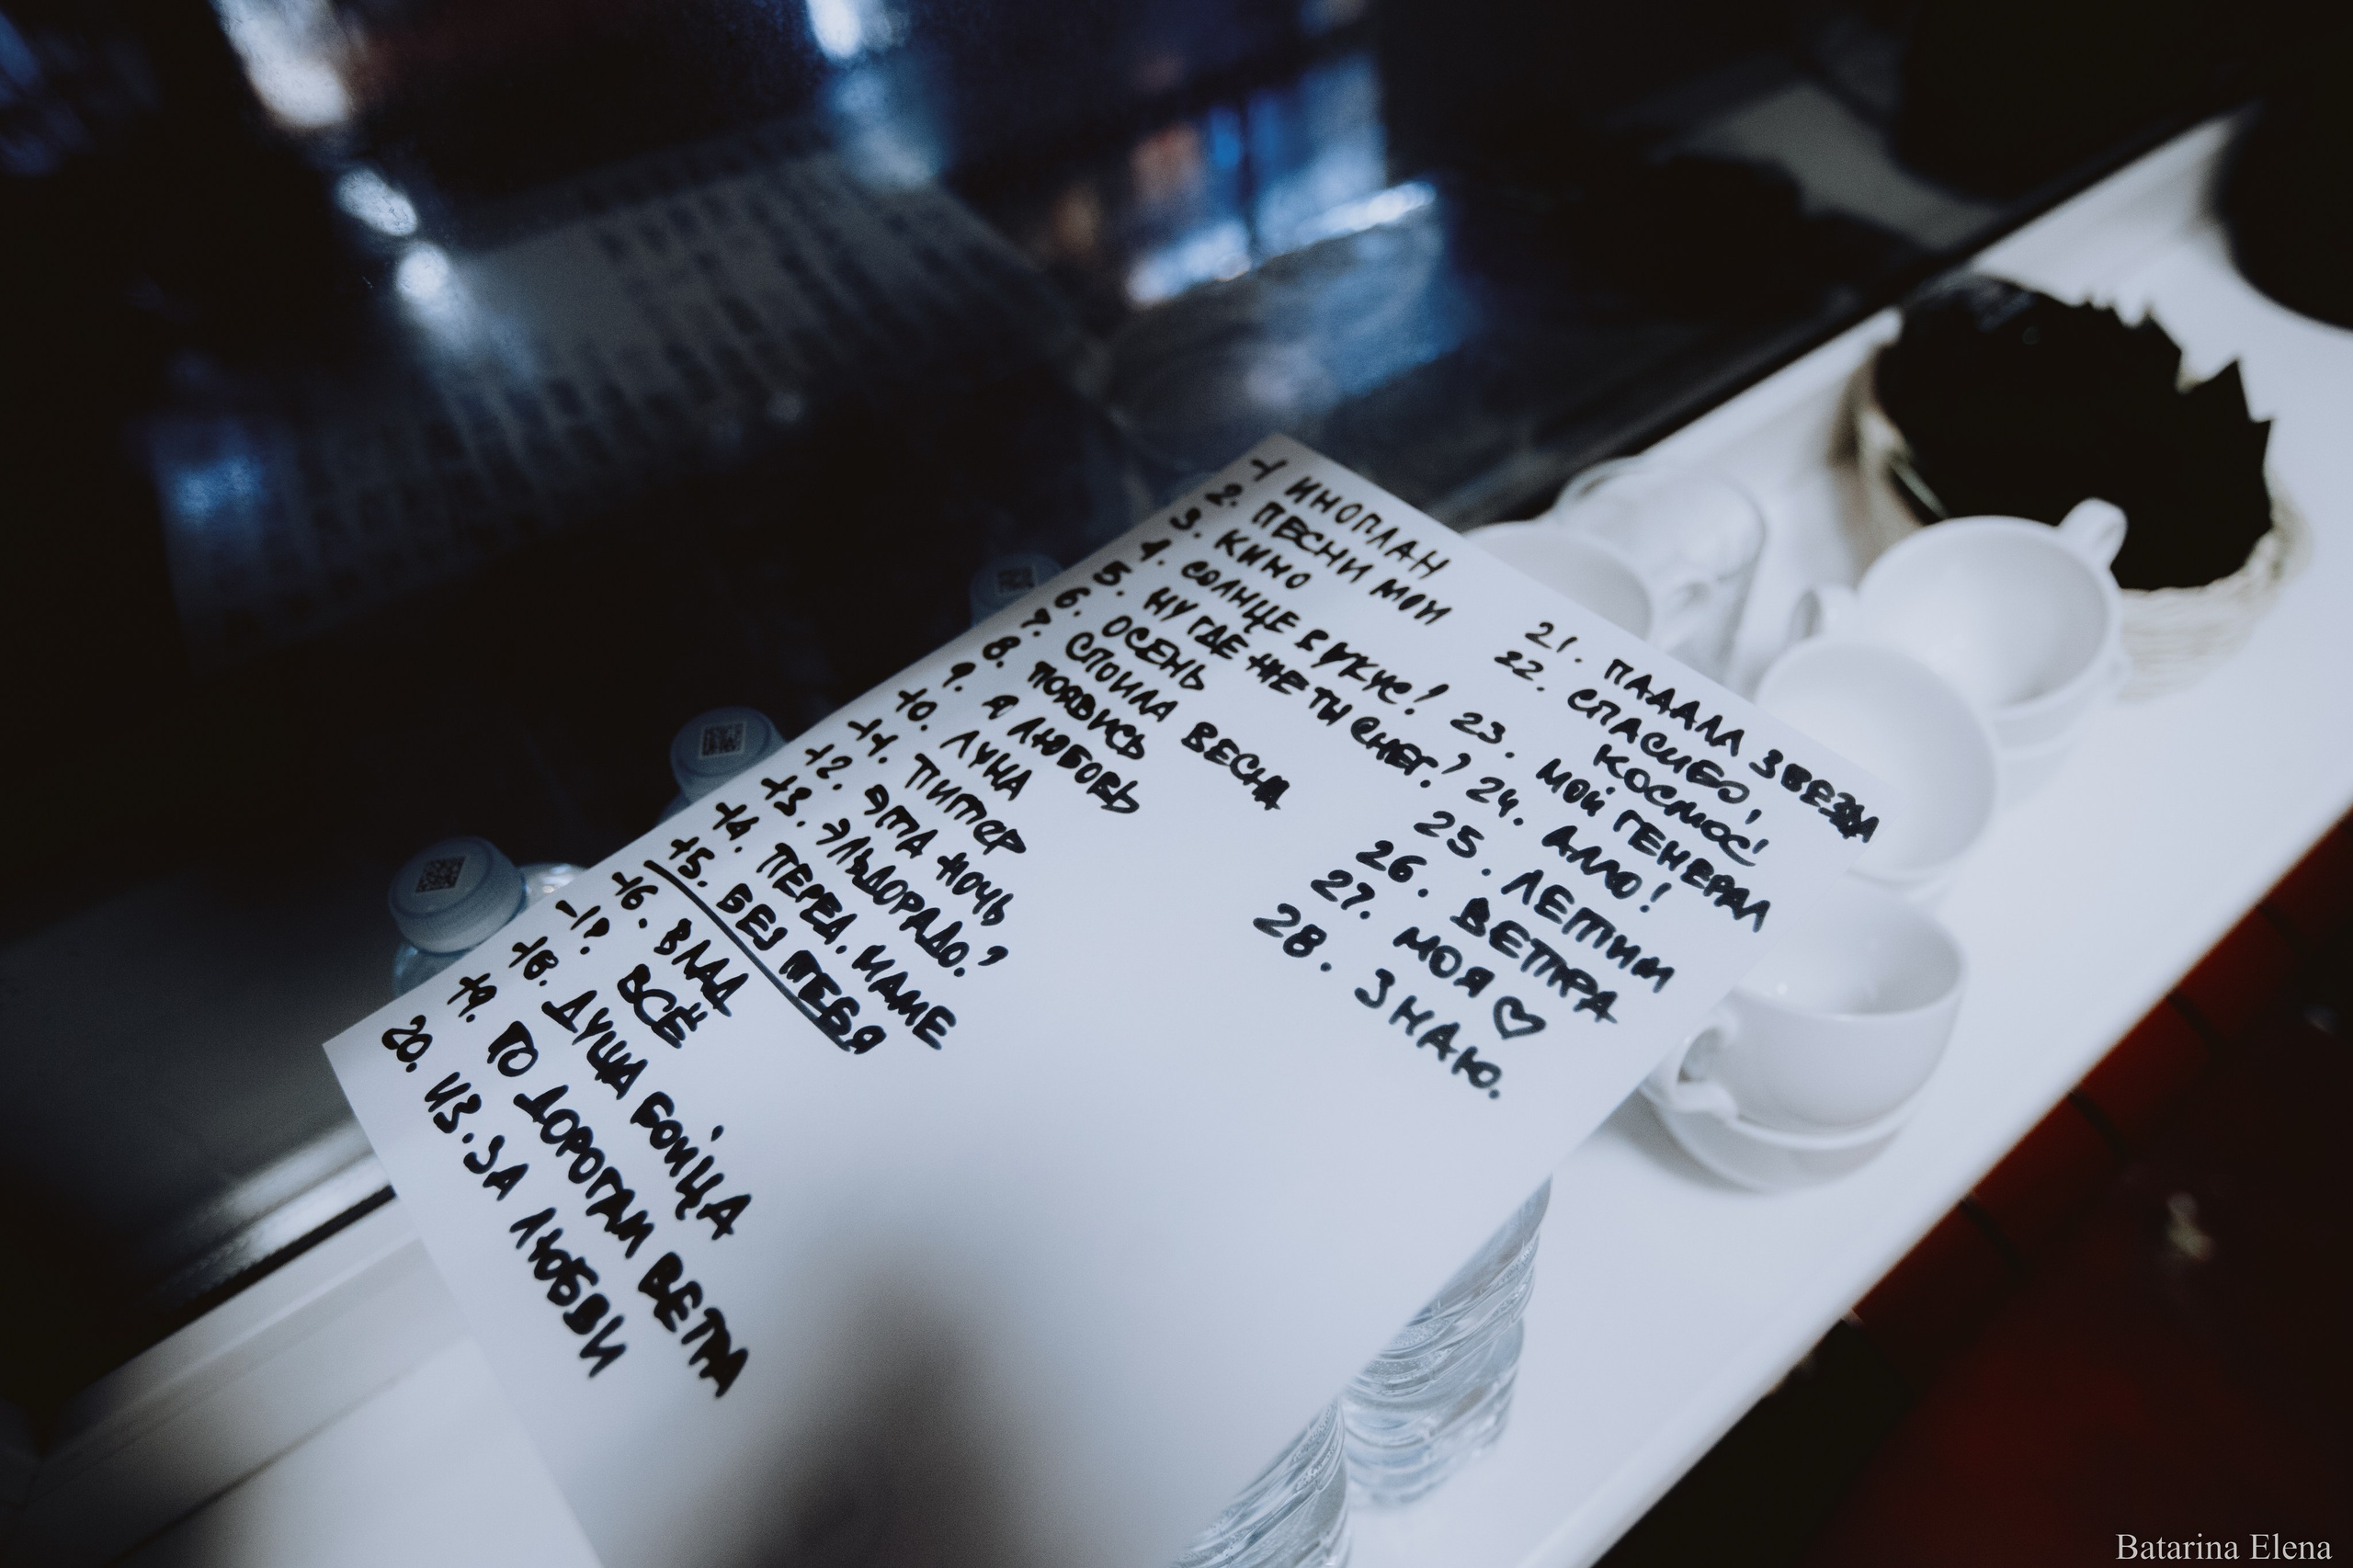 1 ИНОПЛАН
2. ПЕСНИ МОИ
3. КИНО
4. СОЛНЦЕ В УКУС!
5. НУ ГДЕ ЖЕ ТЫ СНЕГ?
6. ОСЕНЬ
7. СПОИЛА ВЕСНА
8. ПОЯВИСЬ
9. Я ЛЮБОВЬ
10. ЛУНА
11. ПИТЕР
12. ЭТА НОЧЬ
13. ЭЛЬДОРАДО?
14. ПЕРЕД. МАМЕ
15. БЕЗ ТЕБЯ
16. ВЛАД
17 ВСЁ
18. ДУША БОЙЦА
19. ПО ДОРОГАМ ВЕТРА
20. ИЗ.ЗА ЛЮБВИ
21. ПАДАЛА ЗВЕЗДА
22. СПАСИБО,
КОСМОС!
23. МОЙ ГЕНЕРАЛ
24. АЛЛО!
25. ЛЕТИМ
26. ВЕТРА
27. МОЯ ♡
28. ЗНАЮ.
Batarina Elena